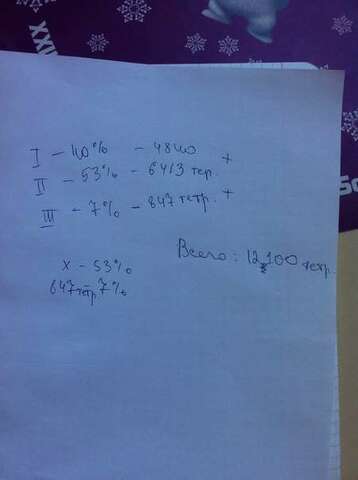 XXI
I - 40% - 4840 +
II - 53% - 6413 тер. +
III - 7% - 847 тетр.
Всего: 12100 тетр.
x - 53%
647 тетр. 7%